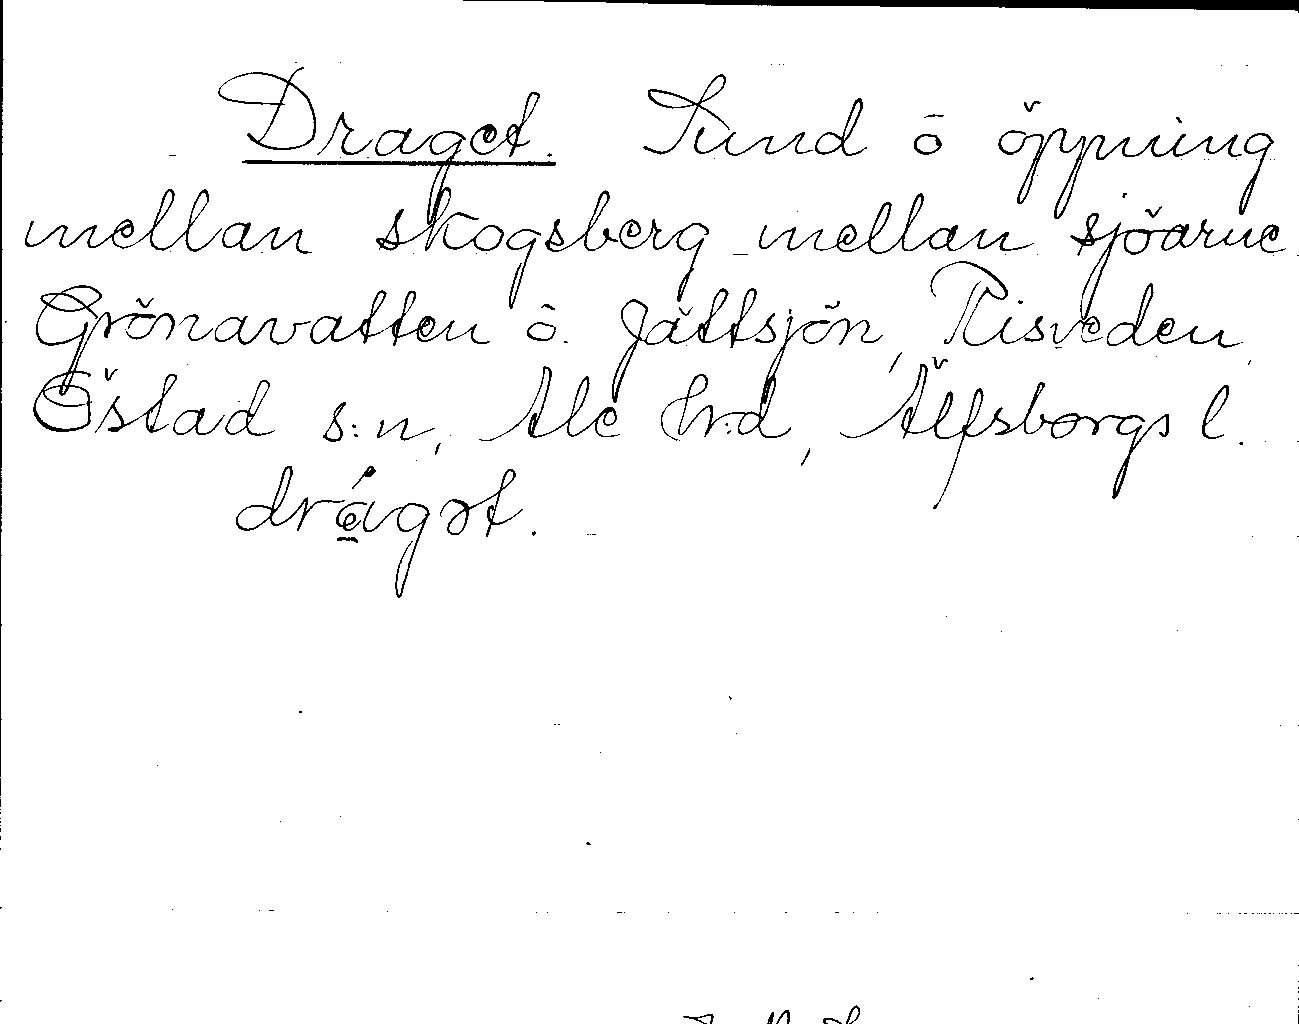 Draget. Sund ō öppning
mellan skogsberg mellan sjöarne
Grönavatten ō. Jättsjön, Risveden,
Östad s:n, Ale hr:d, Älfsborgs l.
drágət.